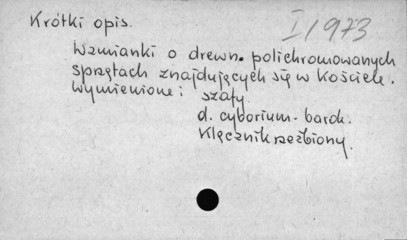 Krótki opis.
I/1973
Wzmianki o drewn. polichromowanych
sprzętach znajdujących się w kościele.
Wymienione: szafy.
d. cyborium - barok.
Klęcznik rzeźbiony.